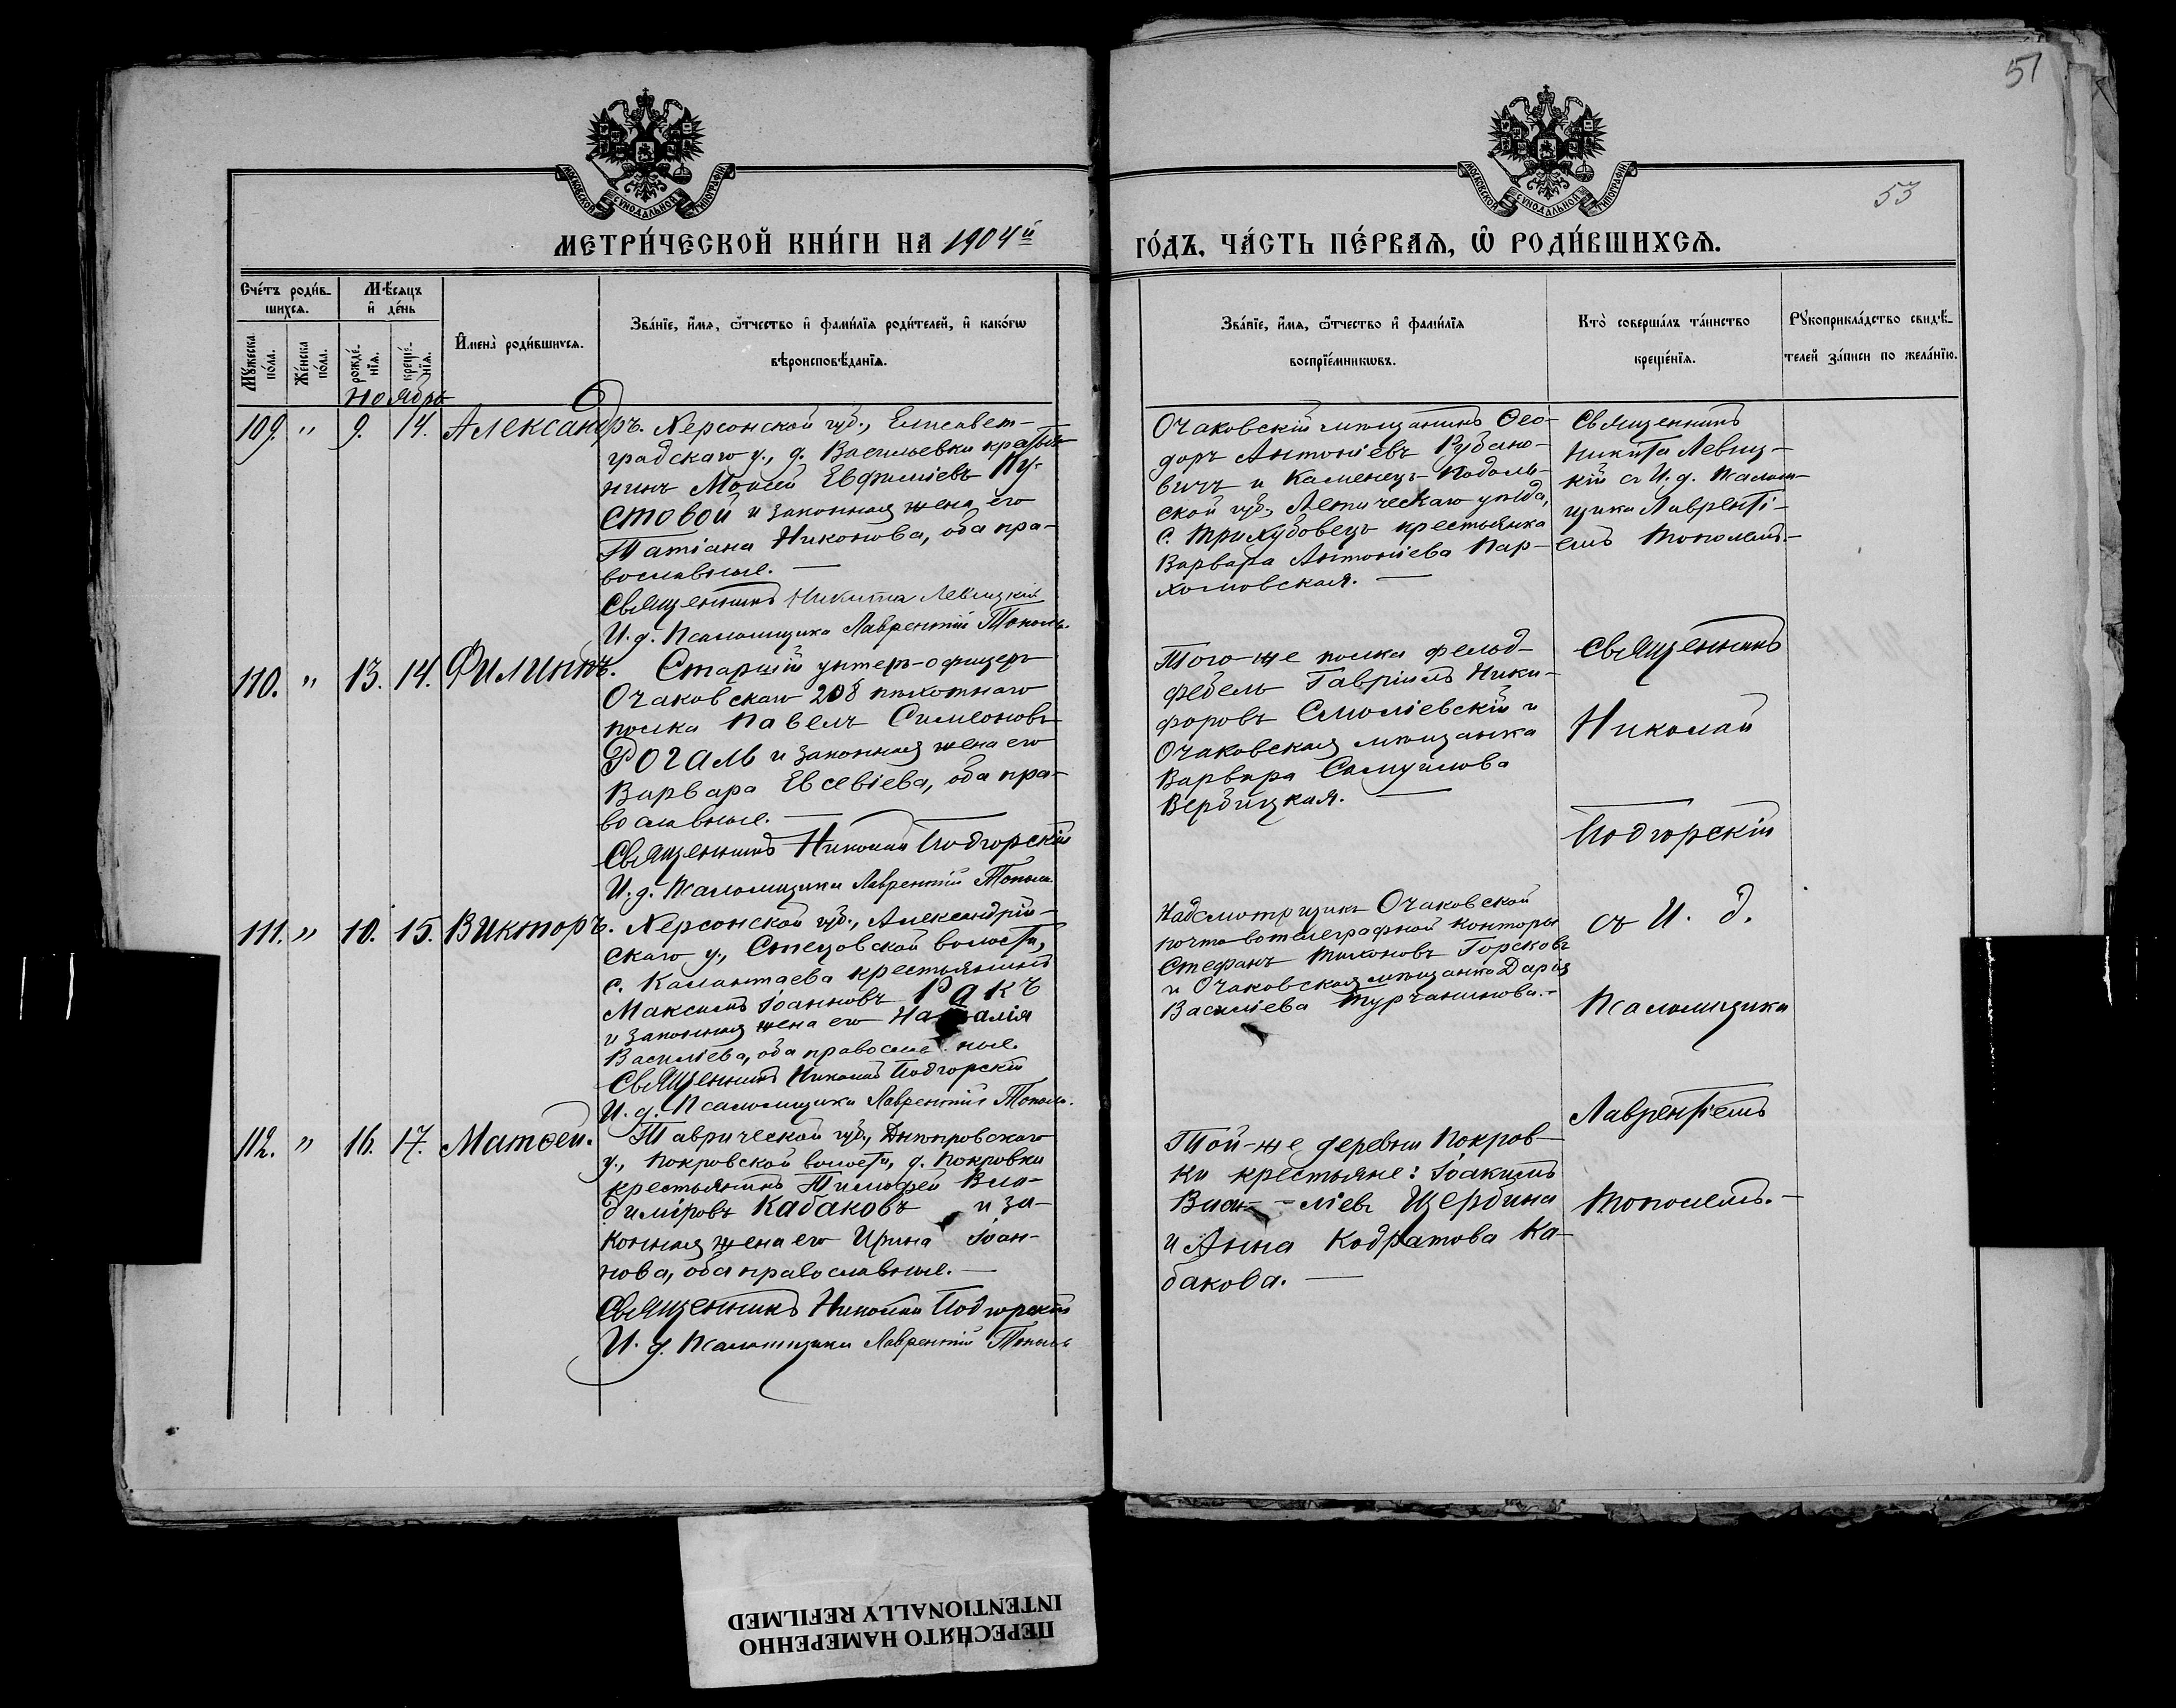 51
53
МОСКОВСКОЙ СѴНОДАЛЬНОЙ ТИПОГРАФІИ
МОСКОВСКОЙ СѴНОДАЛЬНОЙ ТИПОГРАФІИ
МЕТРИ́ЧЕСКОЙ КНИ́ГИ НА 1904й
ГО́ДЪ, ЧА́СТЬ ПЕ́РВАЯ, Ѡ҆ РОДИ́ВШИХСЯ.
Сче́тъ роди́в-
шихся.
Мѣ́сяцъ
и҆ де́нь
Мꙋ́жеска по́ла.
Же́нска по́ла.
рожде́-
нїя.
креще́-
нїя.
И҆мена̀ роди́вшихся.
Зва́нїе, и҆́мя, ѻ҆́тчество и҆ фами́лїя роди́телей, и҆ како́гѡ
вѣроисповѣ́данїя.
Зва́нїе, и҆́мя, ѻ҆́тчество и҆ фами́лїя
воспрїе́мникѡвъ.
Кто̀ соверша́лъ та́инство
креще́нїя.
Рꙋкоприкла́дство свидѣ́-
телей за́писи по жела́нїю.
Ноябрь
109. " 9. 14. Александръ. Херсонской губ., Елисавет-
градскаго у., д. Васильевки крестья-
нинъ Моисей Евфиміевъ Пу-
стовой и законная жена его
Татіана Никонова, оба пра-
вославные. —
Священникъ Никита Левицкій
И. д. Псаломщика Лаврентій Тополь.
Очаковскій мѣщанинъ Ѳео-
доръ Антоніевъ Рубано-
вичъ и Каменецъ-Подоль-
ской губ., Летическаго уѣзда,
с. Трихубовецъ крестьянка
Варвара Антоніева Пар-
хомовская. —
Священникъ
Никита Левиц-
кій съ И. д. Псалом-
щика Лавренті-
емъ Тополемъ.—
110. " 13. 14. Филиппъ. Старшій унтеръ-офицеръ
Очаковскаго 208 пѣхотнаго
полка Павелъ Симеоновъ
Рогаль и законная жена его
Варвара Евсевіева, оба пра-
вославные. —
Священникъ Николай Подгорскій
И. д. Псаломщика Лаврентій Тополь.
Того-же полка фельд-
фебель Гавріилъ Ники-
форовъ Смоліевскій и
Очаковская мѣщанка
Варвара Самуилова
Вербицкая. —
Священникъ
Николай
Подгорскій
съ И. д.
Псаломщика
Лаврентіемъ
Тополемъ.—
111. " 10. 15. Викторъ. Херсонской губ., Александрій-
скаго у., Стецовской волости,
с. Калантаева крестьянинъ
Максимъ Іоанновъ Ракъ
и законная жена его На алія
Василіева, оба правосла ные.
Священникъ Николай Подгорскій
И. д. Псаломщика Лаврентій Тополь.
Надсмотрщикъ Очаковской
почтовотелеграфной конторы
Стефанъ Тихоновъ Горсковъ
и Очаковская мѣщанка Дарія
Василіева Турчанинова.—
112. " 16. 17. Матѳей. Таврической губ., Днѣпровскаго
у., Покровской волости, д. Покровки
крестьянинъ Тимофей Вла-
диміровъ Кабаковъ и за-
конная жена его Ирина Іоан-
нова, оба православные. —
Священникъ Николай Подгорскій
И. д. Псаломщика Лаврентій Тополь
Той-же деревни Покров-
ки крестьяне: Іоакимъ
Васи- -ліевъ Щербина
и Анна Кодратова Ка-
бакова. —
ПЕРЕСНЯТО НАМЕРЕННО
INTENTIONALLY REFILMED